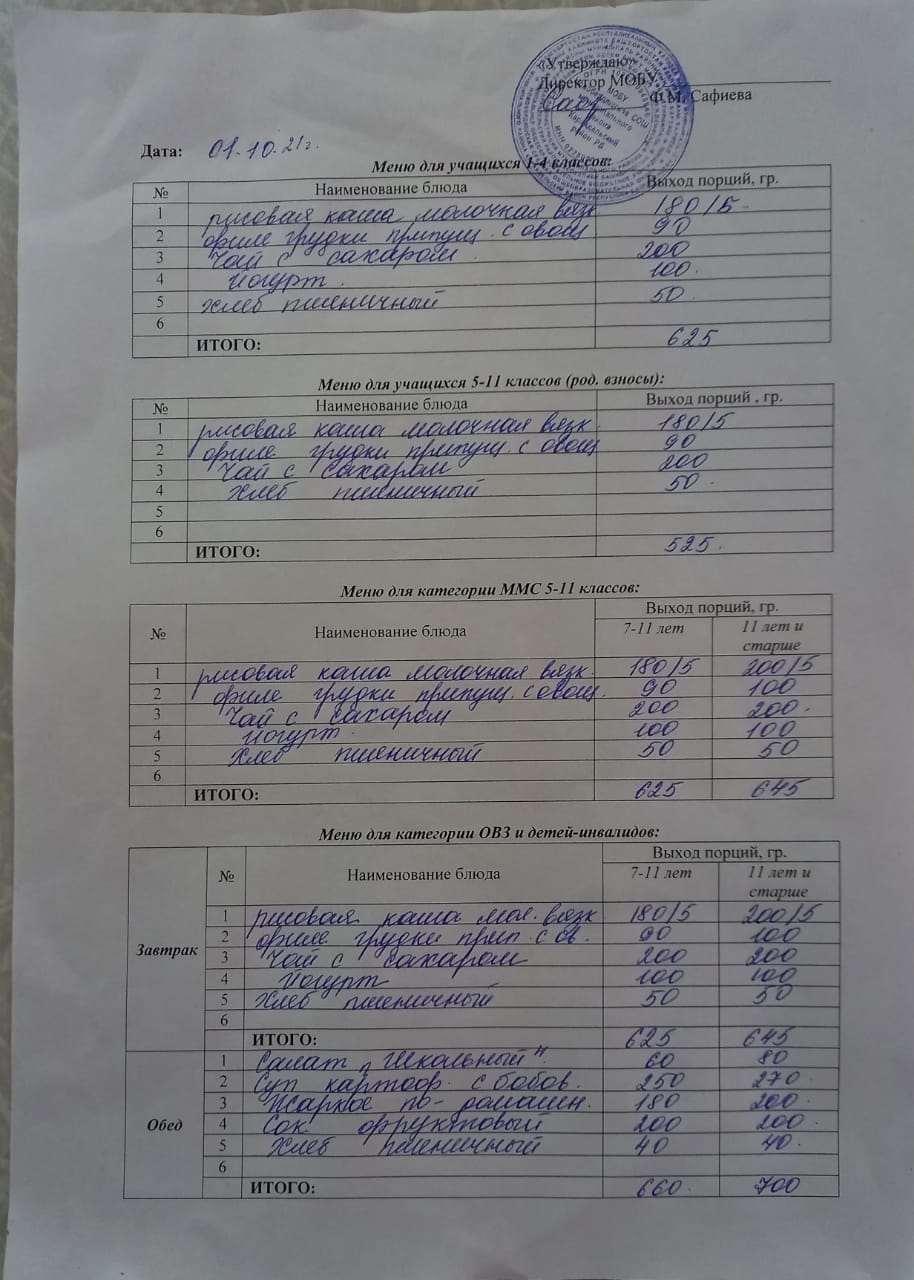 «Утверждаю»
Директор МОБУ
Ф.М. Сафиева
Дата: 01.10.21г.
Меню для учащихся 1-4 классов:
№ Наименование блюда Выход порций, гр.
1 рисовая каша молочная вязк 180/5
2 филе грудки припущ. с овощ 90
3 Чай с сахаром. 200
4 Йогурт. 100.
5 Хлеб пшеничный 50.
6
ИТОГО: 625
Меню для учащихся 5-11 классов (род. взносы):
№ Наименование блюда Выход порций , гр.
1 рисовая каша молочная вязк 180/5
2 филе грудки припущ. с овощ 90
3 Чай с сахаром 200
4 Хлеб пшеничный 50.
5
6
ИТОГО: 525.
Меню для категории ММС 5-11 классов:
№ Наименование блюда Выход порций, гр.
7-11 лет 11 лет и старше
1 рисовая каша молочная вязк. 180/5 200/5
2 филе грудки припущ. с овощ. 90 100
3 Чай с сахаром 200 200.
4 Йогурт. 100 100
5 Хлеб пшеничный 50 50
6
ИТОГО: 625 645
Меню для категории ОВЗ и детей-инвалидов:
№ Наименование блюда Выход порций, гр.
7-11 лет 11 лет и старше
Завтрак
1 рисовая каша мол. вязк 180/5 200/5
2 филе грудки прип. с ов. 90 100
3 Чай с сахаром 200 200
4 Йогурт 100 100
5 Хлеб пшеничный 50 50
6
ИТОГО: 625 645
Обед
1 Салат „Школьный" 60 80
2 Суп картоф. с бобов. 250 270.
3 Жаркое по-домашн. 180 200.
4 Сок фруктовый 200 200.
5 Хлеб пшеничный 40 40.
6
ИТОГО: 660. 700